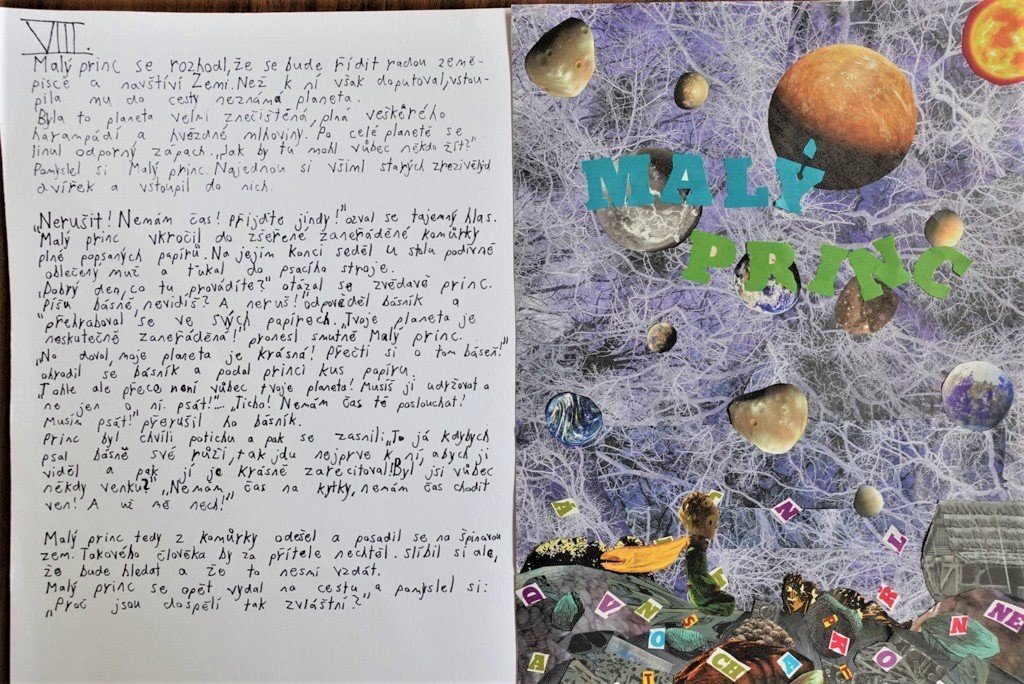 VIII.
Malý princ se rozhodl, že se bude řídit radou země-
pisce a navštíví Zemi. Než k ní však doputoval, vstou-
pila mu do cesty neznámá planeta.
Byla to planeta velmi znečistěná, plná veškerého
harampádí a hvězdné mlhoviny. Po celé planetě se
linul odporný zápach. „Jak by tu mohl vůbec někdo žít?"
Pomyslel si Malý princ. Najednou si všiml starých zrezivělých
dvířek a vstoupil do nich.
„Nerušit! Nemám čas! Přijďte jindy!" ozval se tajemný hlas.
Malý princ vkročil do zšeřené zaneřáděné komůrky
plné popsaných papírů. Na jejím konci seděl u stolu podivně
oblečený muž a ťukal do psacího stroje.
„Dobrý den, co tu provádíte?" otázal se zvědavě princ.
„Píšu básně, nevidíš? A neruš!" odpověděl básník a
přehraboval se ve svých papírech. „Tvoje planeta je
neskutečně zaneřáděná! pronesl smutně Malý princ.
„No dovol, moje planeta je krásná! Přečti si o tom báseň!"
ohradil se básník a podal princi kus papíru.
„Tohle ale přece není vůbec tvoje planeta! Musíš ji udržovat a
ne jen o ní psát!"... „Ticho! Nemám čas tě poslouchat!
Musím psát!" přerušil ho básník.
Princ byl chvíli potichu a pak se zasnil: „To já kdybych
psal básně své růži, tak jdu nejprve k ní, abych ji
viděl a pak jí je krásně zarecitoval. Byl jsi vůbec
někdy venku?" „Nemám čas na kytky, nemám čas chodit
ven! A už mě nech!"
Malý princ tedy z komůrky odešel a posadil se na špinavou
zem. Takového člověka by za přítele nechtěl. Slíbil si ale,
že bude hledat a že to nesmí vzdát.
Malý princ se opět vydal na cestu a pomyslel si:
„Proč jsou dospělí tak zvláštní?"
MALÝ
PRINC